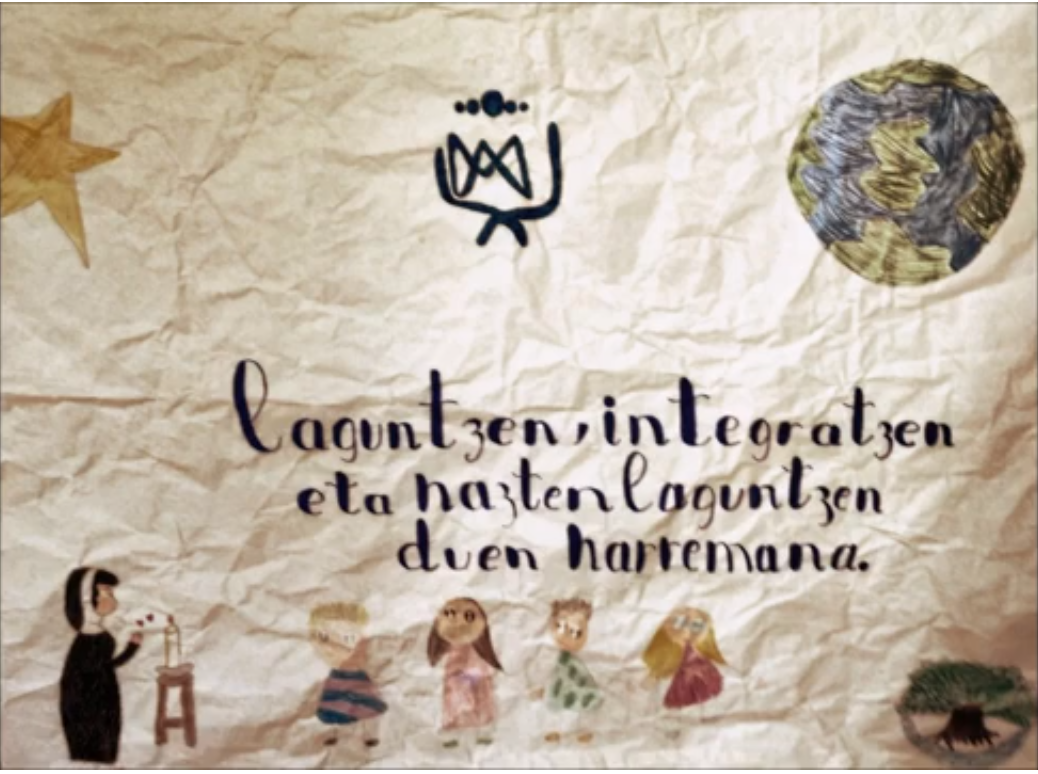 laguntzen, integratzen
eta hazten laguntzen
duen harremana.